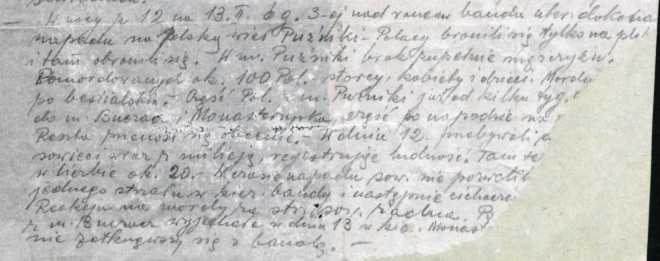 W nocy z 12 na 13.II. o g. 3-ej nad ranem banda ukr. dokonała
napadu na polską wieś Puźniki. Polacy bronili się tylko na pleb
i tam obronili się. W m. Puźniki brak zupełnie mężczyzn.
Pomordowanych ok. 100 Pol. starcy, kobiety i dzieci. Mordy
po bestialsku. Część Pol. z m. Puźniki już od kilku tyg.
do m. Buczacz i Monasterzyska, część po napadzie na
Reszta przenosi się obecnie. W dniu 12. przebywali
sowieci wraz z milicją, rejestrując ludność. Tam że
w liczbie ok. 20. W czasie napadu sow. nie pozwolili
jednego strzału w kier. bandy i następnie
Reakcja na mordy ze str. sow. żadna.
z m. Buczacz wyjechała w dniu 13 w kier. Monast
nie zetknąwszy się z bandą. —